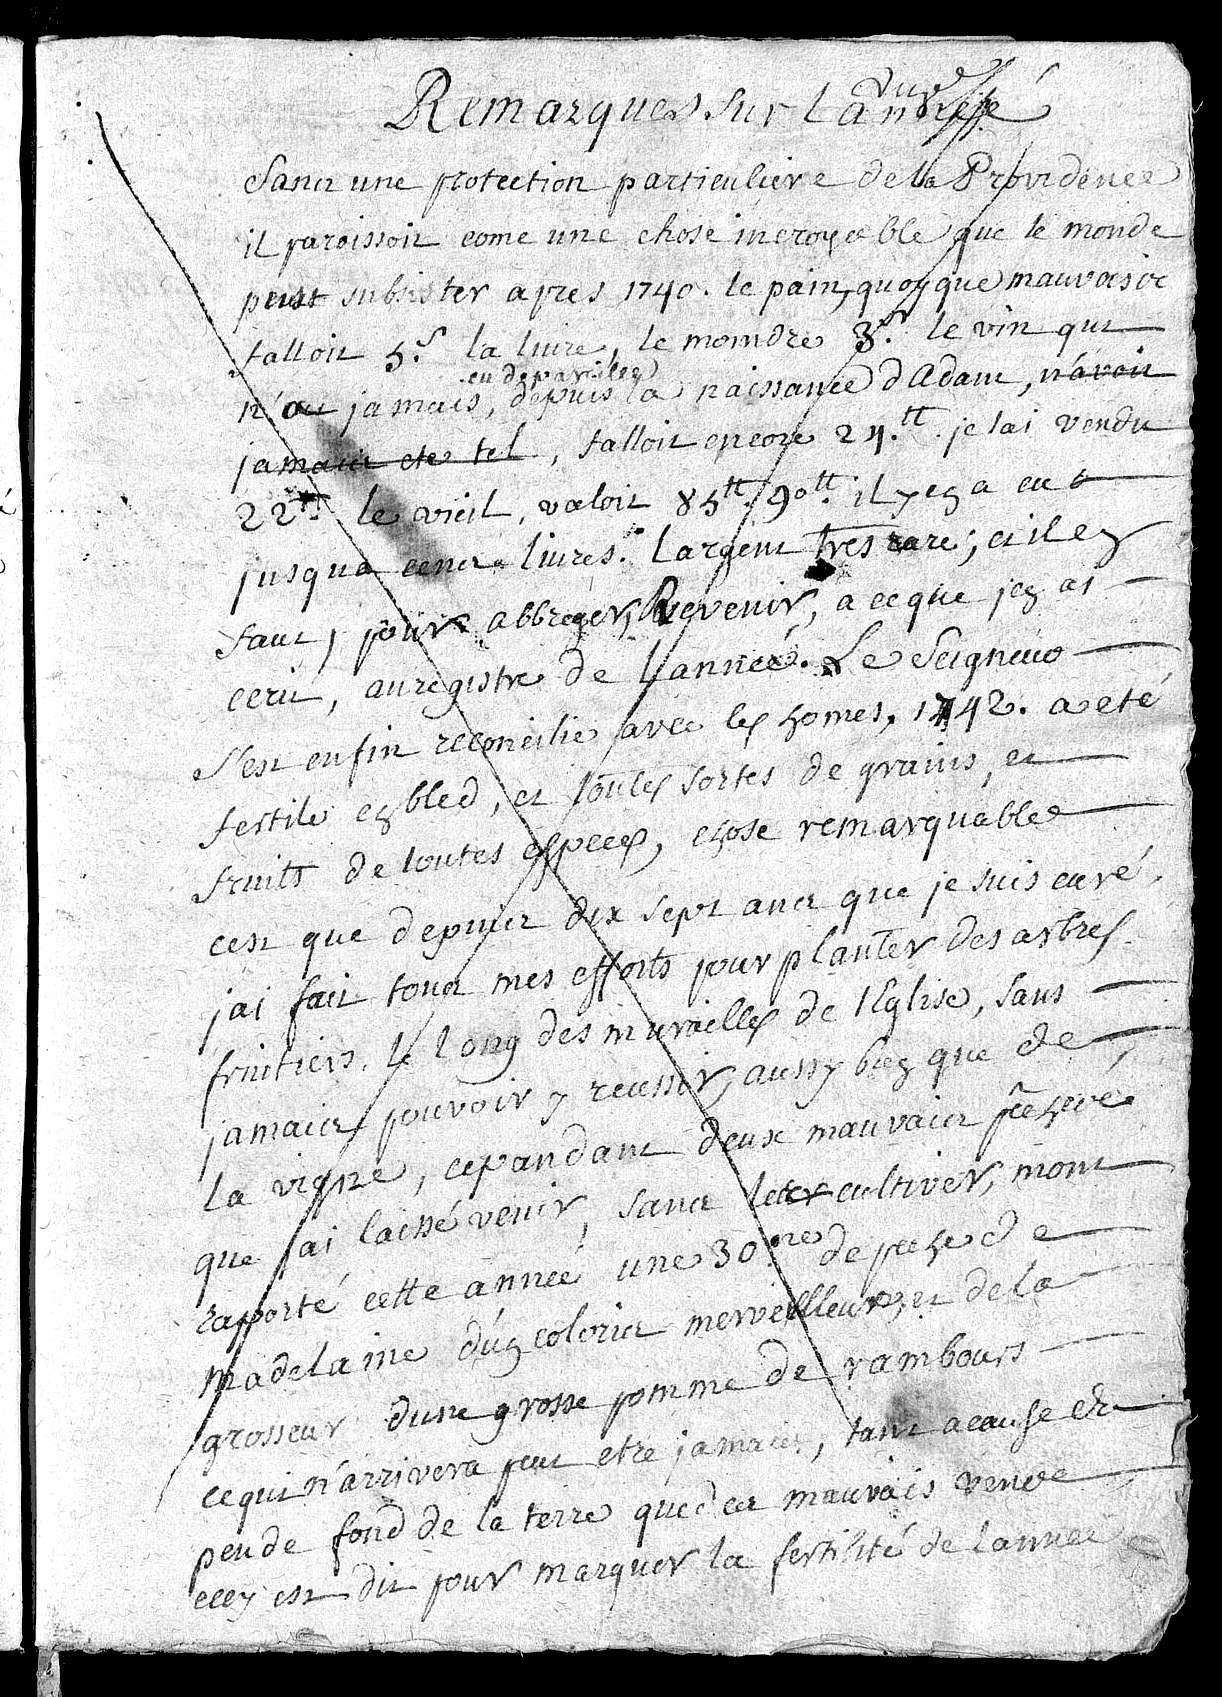 Remarques sur lanneé
Sans une protection particuliere de la Providence
il paroissoit come une chose incroyable que le monde
peut subsister apres 1740. le pain, quoyque mauvais
falloit 5.s la livre, le moindre 3.s le vin qui
n'a jamais, depuis la naissance d'Adam, n'avoit
eu de pareilles
jamais ete tel, falloit encore 24.tt je lai vendu
22tt. le vieil, valoit 85tt. 90tt. il y en a eut
jusqua cent livres. largent tres rare; et il en
faut, pour abbreger, Revenir, a ceque jen ai
ecrit, au registre de lanneé. Le Seigneur
s'est enfin reconcilié avec les homes, 1742. a eté
fertile en bled, et toutes sortes de grains, et
fruits de toutes especes, chose remarquable
cest que depuis dix sept ans que je suis curé,
jai fait tous mes efforts pour planter des arbres
fruitiers, le long des murailles de l'Eglise, sans
jamais pouvoir y reussir, aussy bien que de
la vigne, cepandant deux mauvais pechers
que jai laissé venir, sans les cultiver, mont
rapporté cette anneé une 30.ne de peche de
madelaine d'un coloris merveilleux, et de la
grosseur dune grosse pomme de rambours
cequi n'arrivera peut etre jamais, tant a cause du
peu de fond de la terre que des mauvais vents
cecy est dit pour marquer la fertilité de lanneé